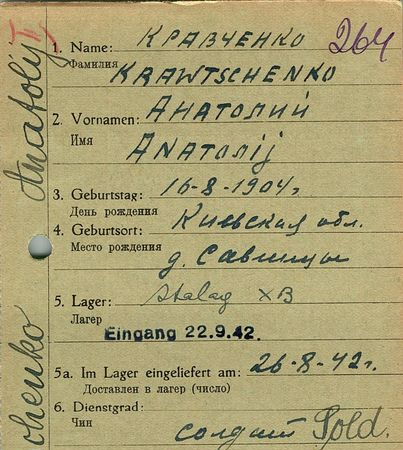 Anatolij
chenko
264
1. Name: КРАВЧЕНКО
Фамилия KRAWTSCHENKO
2. Vornamen: АНАТОЛИЙ
Имя ANATOLIJ
3. Geburtstag: 16-8-1904 г.
День рождения
4. Geburtsort: Киевская обл.
Место рождения
д. Савинцы
5. Lager: Stalag XB
Лагер
Eingang 22.9.42.
5a. Im Lager eingeliefert am: 26-8-42 г.
Доставлен в лагер (число)
6. Dienstgrad:
Чин солдат Sold.